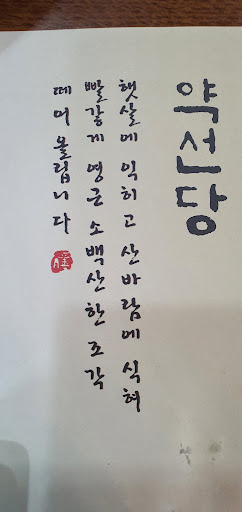 약선당
햇살에 익히고 산바람에 식혀
빨갛게 영근 소백산 한 조각
떼어 올립니다